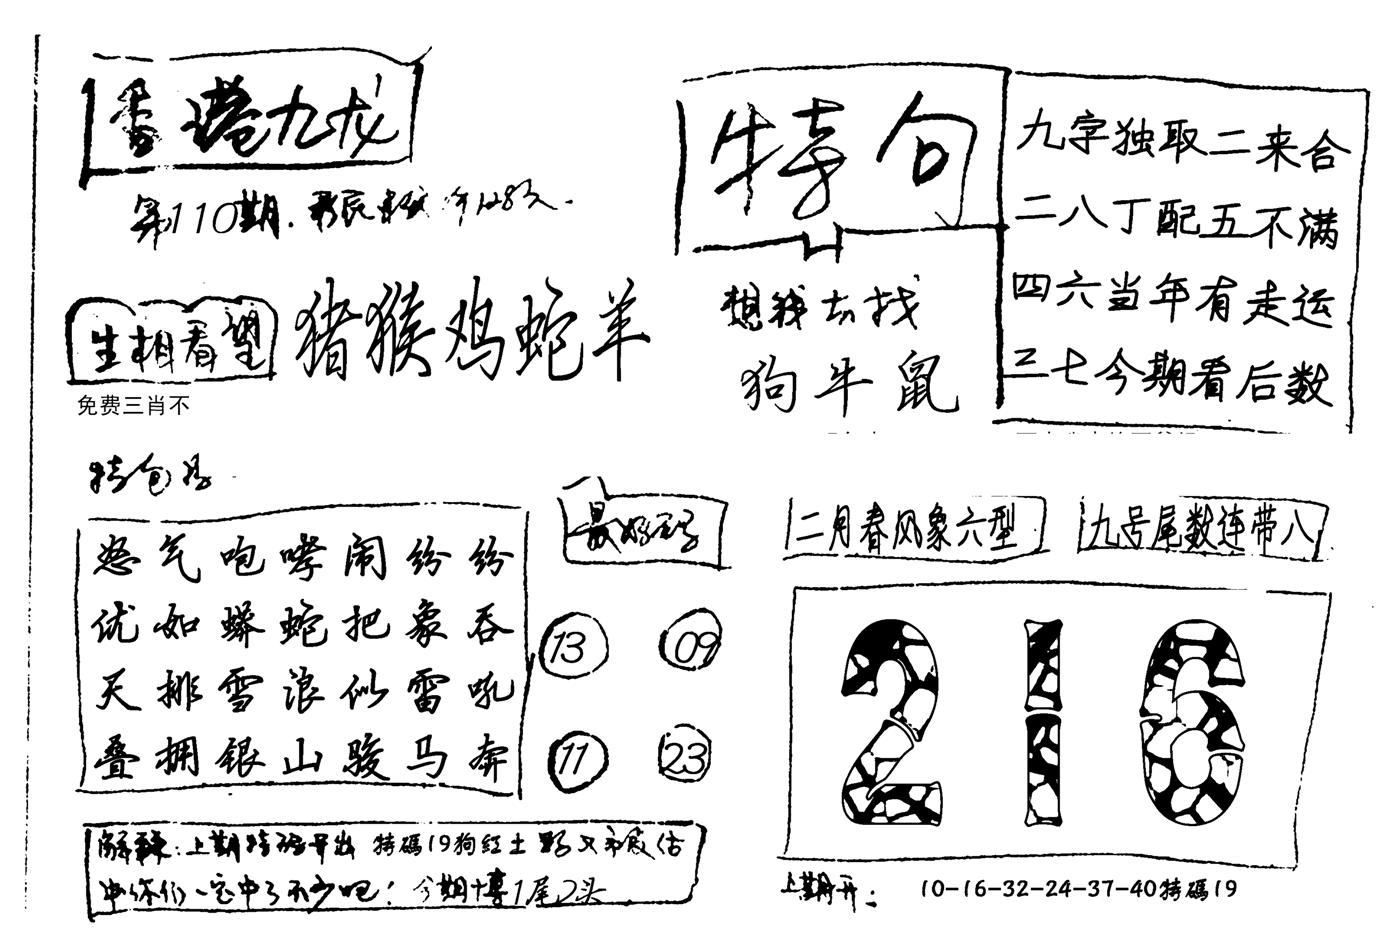 香港九龙
第110期.
生相看望
猪猴鸡蛇羊
免费三肖不
特句
想我去找
狗牛鼠
九字独取二来合
二八丁配五不满
四六当年有走运
三七今期看后数
怒气咆哮闹纷纷
优如蟒蛇把象吞
天排雪浪似雷吼
叠拥银山骏马奔
13 09
11 23
二月春风象六型
九号尾数连带八
216
解: 上期特码开出 特碼19狗红土
中你们一定中了不少吧! 今期博1尾2头
上期开: 10-16-32-24-37-40特碼19